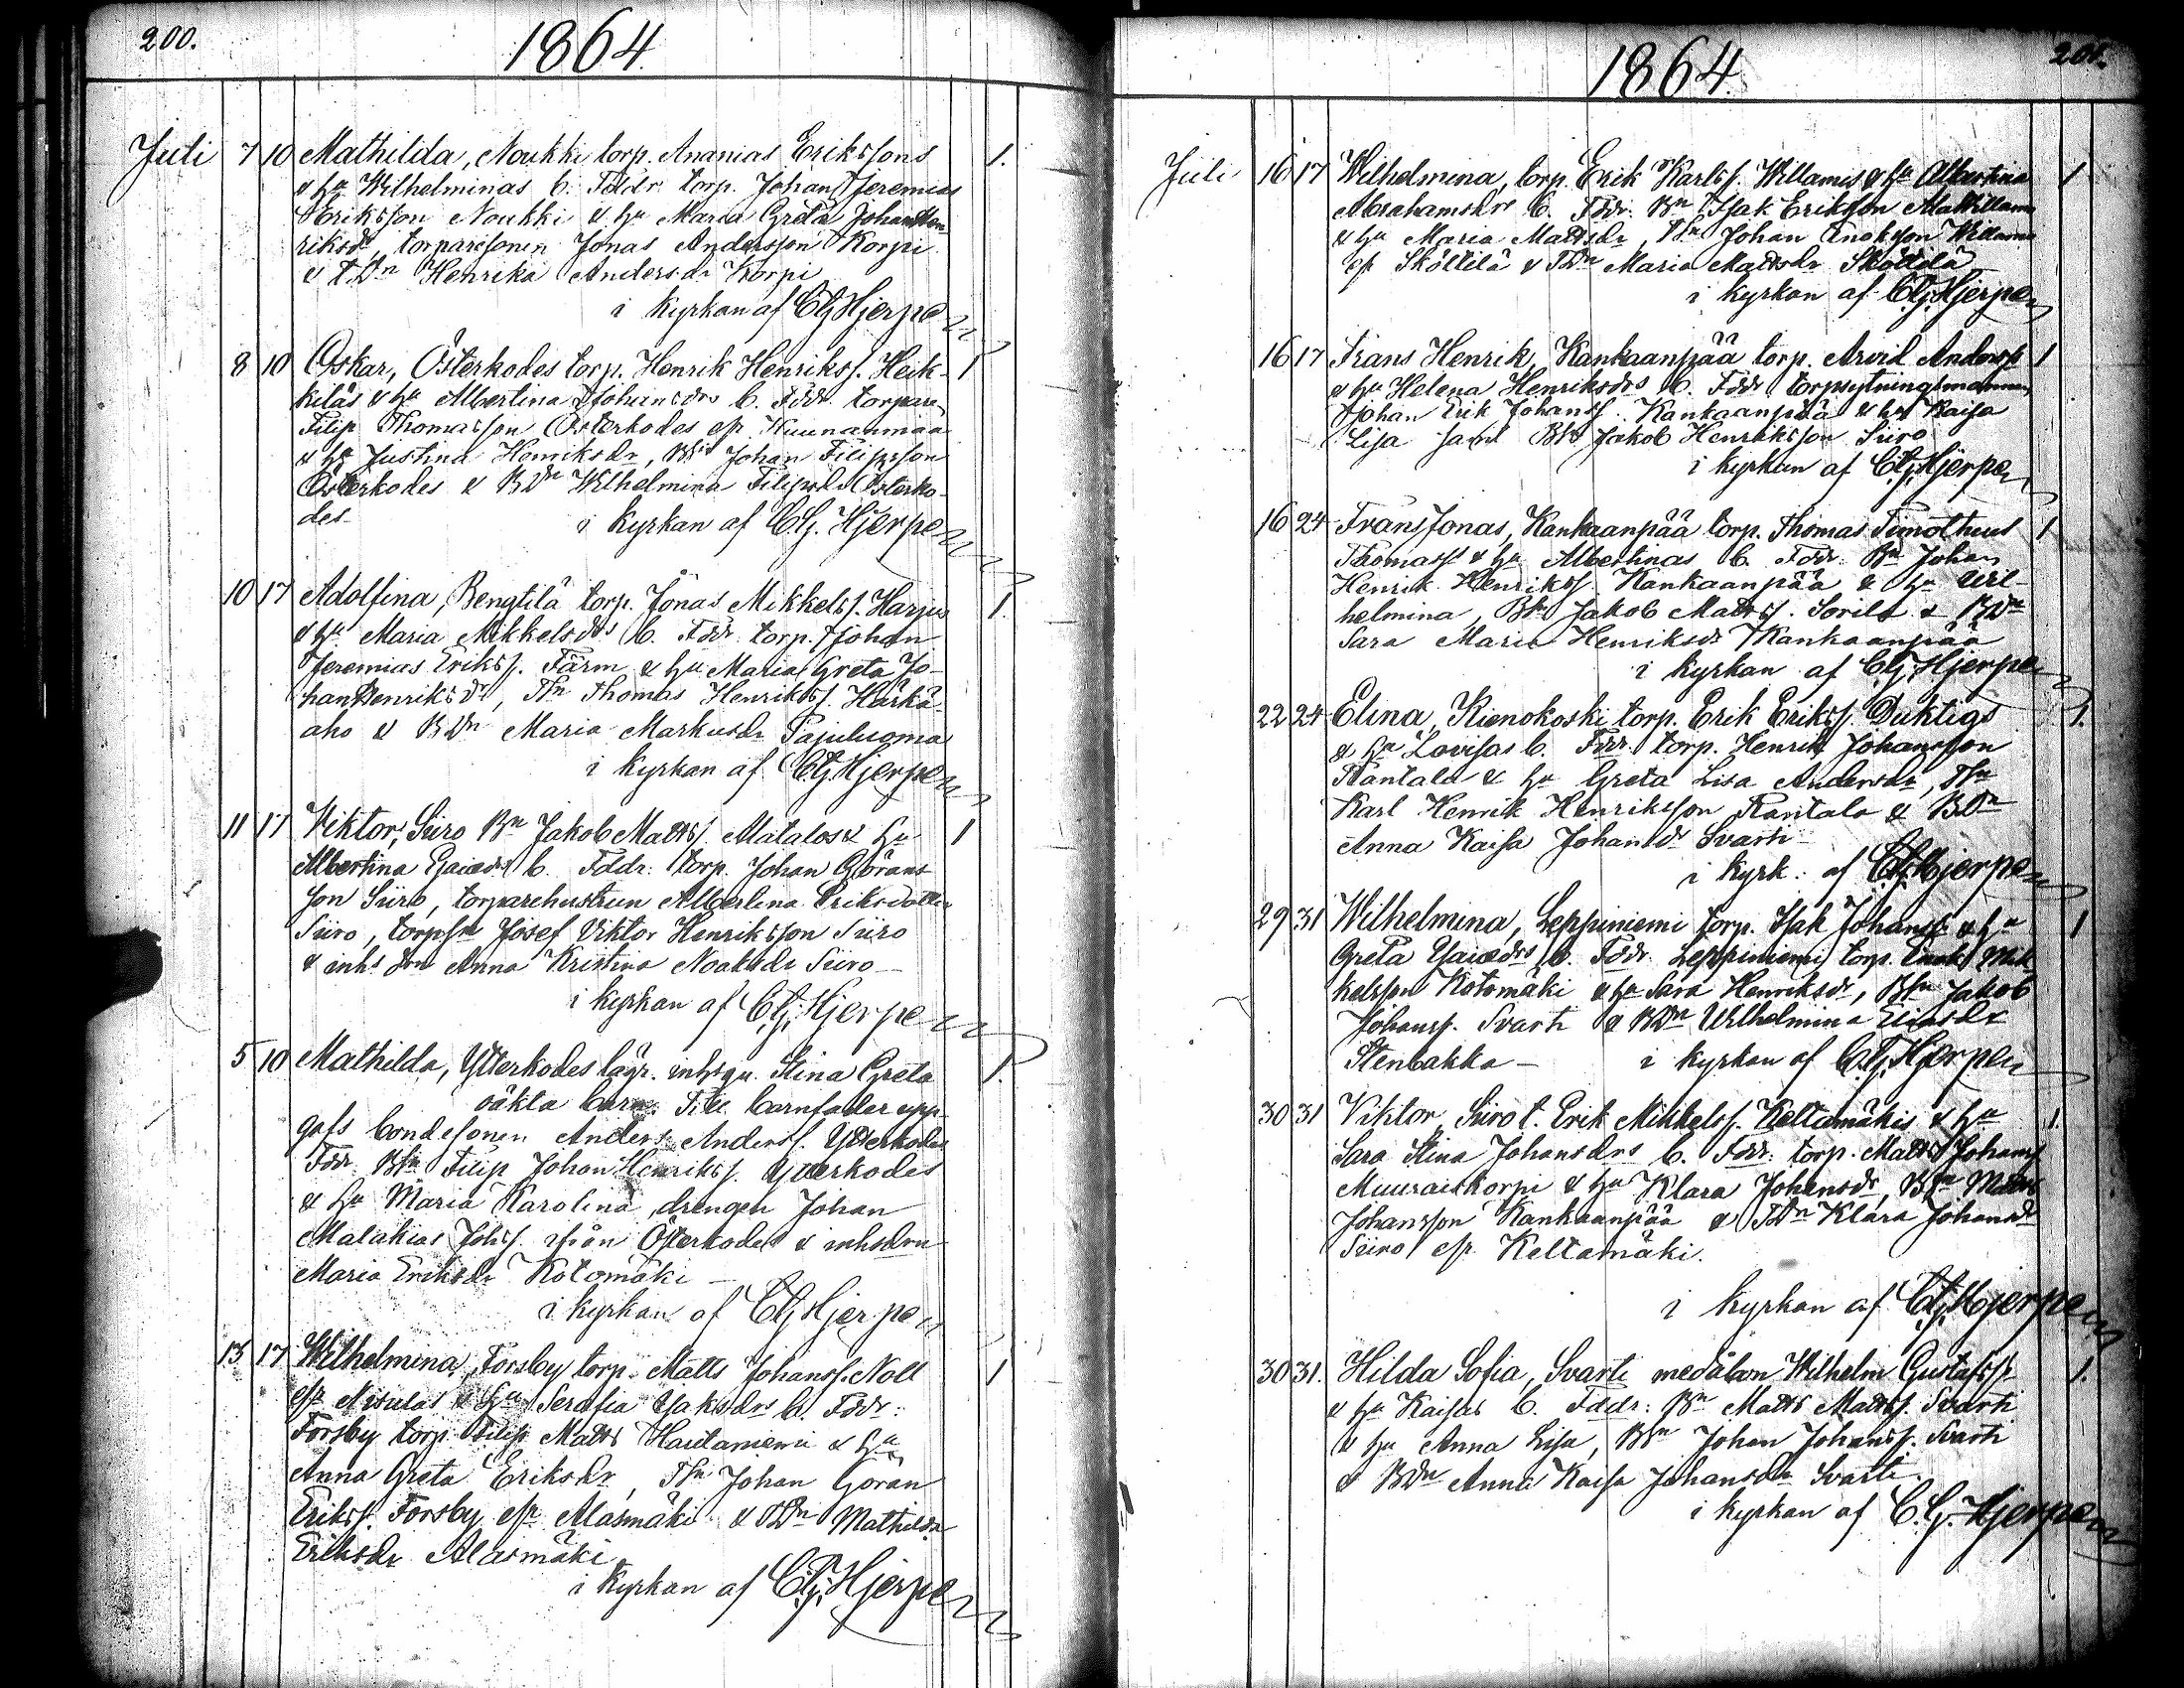 200.
1864
Juli 7 10 Mathilda, Noukki torp. Ananias Erikssons 1.
& hu Wilhelminas b. Fddr torp. Johan Jeremias
Eriksson Noukki & hu Maria Greta Johan Hen-
riksdr, torparesonen Jonas Andersson Korpi
& TDn Henrika Andersdr Korpi
i kyrkan af CG Hjerpe
8 10 Oskar, Österkodes torp. Henrik Henrikss. Heik- 1
kiläs & hu Albertina Johansdrs b. Fddr. torparen
Filip Thomasson Österkodes ep. Kuunanmaa
& hu Justina Henriksdr, Bsn Johan Filipsson
Österkodes & BDn Wilhelmina Filipsdr Österko-
des - i kyrkan af CG. Hjerpe
10 17 Adolfina, Bengtilä torp. Jonas Mikkelss. Harjus 1.
& hu Maria Mikkelsdrs b. Fddr torp. Johan
Jeremias Erikss. Färm & hu Maria Greta Jo-
han Henriksdr, Tsn Thomas Henrikss. Härkä-
aho & BDn Maria Markusdr Pajuluoma
i kyrkan af CG Hjerpe
11 17 Viktor, Siiro Bn Jakob Matts. Matalas & hu 1
Albertina Esaiædrs b. Fddr: torp. Johan Görans
son Siiro, torparehustrun Albertina Eriksdotter
Siiro, torpsn Josef Viktor Henriksson Siiro
& inhs drn Anna Kristina Noaksdr Siiro -
i kyrkan af CG. Hjerpe
5 10 Mathilda, Ytterkodes lägr. inhsqu. Stina Greta 1.
oäkta barn. Till barnfader upp-
gafs bondesonen Anders Anderss. Ytterkodes
Fddr. Bn Filip Johan Henrikss. Ytterkodes
& hu Maria Karolina, drengen Johan
Malakias Johss. ifrån Österkodes & inhsdrn
Maria Eriksdr Kotomäki -
i kyrkan af CG Hjerpe
13 17 Wilhelmina, Forsby torp. Matts Johanss. Noll 1
ep Nisulas & hu Serafia Isaksdrs b. Fddr:
Forsby torp. Filip Matts Hautaniemi & hu
Anna Greta Eriksdr, Tsn Johan Göran
Erikss. Forsby ep. Alasmäki & TDn Mathilda
Eriksdr Alasmäki
i kyrkan af C.G. Hjerpe
201.
1864
Juli 16 17 Wilhelmina, torp. Erik Karlss. Willamis & hu Albertina 1
Abrahamsdrs b. Fddr: Bn Isak Eriksson Ala Willamo
& hu Maria Mattsdr, Tsn Johan Enoksson Willamo
ep Sköttilä & TDn Maria Mattsdr Sköttilä
i kyrkan af CG. Hjerpe
16 17 Frans Henrik, Kankaanpää torp. Arvid Anderss 1
& hu Helena Henriksdrs b. Fddr torpsytningsmannen
Johan Erik Johanss. Kankaanpää & hu Kaisa
Lisa samt Bsn Jakob Henriksson Siiro
i kyrkan af CG. Hjerpe
16 24 Frans Jonas, Kankaanpää torp. Thomas Timotheus 1
Thomass & hu Albertinas b. Fddr: Bn Johan
Henrik Henrikss Kankaanpää & hu Wil-
helmina, Bsn Jakob Mattss. Sorila & BDn
Sara Maria Henriksdr Kankaanpää
i kyrkan af CG. Hjerpe
22 24 Elina, Kienokoski torp. Erik Erikss. Duktigs 1.
& hu Lovisas b. Fddr. torp. Henrik Johansson
Rantala & hu Greta Lisa Andersdr, Tsn
Karl Henrik Henriksson Rantala & BDn
Anna Kaisa Johansdr Svarti -
i kyrk: af CG Hjerpe
29 31 Wilhelmina, Leppiniemi torp. Isak Johanss & hu 1
Greta Esaiædrs b. Fddr. Leppiniemi torp. Enok Mik
kelsson Kotomäki & hu Sara Henriksdr, Bsn Jakob
Johanss. Svarti & BDn Wilhelmina Eliasdr
Stenbakka - i kyrkan af CG. Hjerpe
30 31 Viktor, Siiro t. Erik Mikkelss. Keltamäkis & hu 1.
Sara Stina Johansdrs b. Fddr: torp. Matts Johanss
Muuraiskorpi & hu Klara Johansdr, Bsn Matts
Johansson Kankaanpää & TDn Klara Johansdr
Siiro ep. Keltamäki.
i kyrkan af CG. Hjerpe
30 31. Hilda Sofia, Svarti medåbon Wilhelm Gustafss 1.
& hu Kaisas b. Fddr: Bn Matts Mattss. Svarti
& hu Anna Lisa, Bsn Johan Johanss. Svarti
& BDn Anna Kaisa Johansdr Svarti
i kyrkan af C.G. Hjerpe